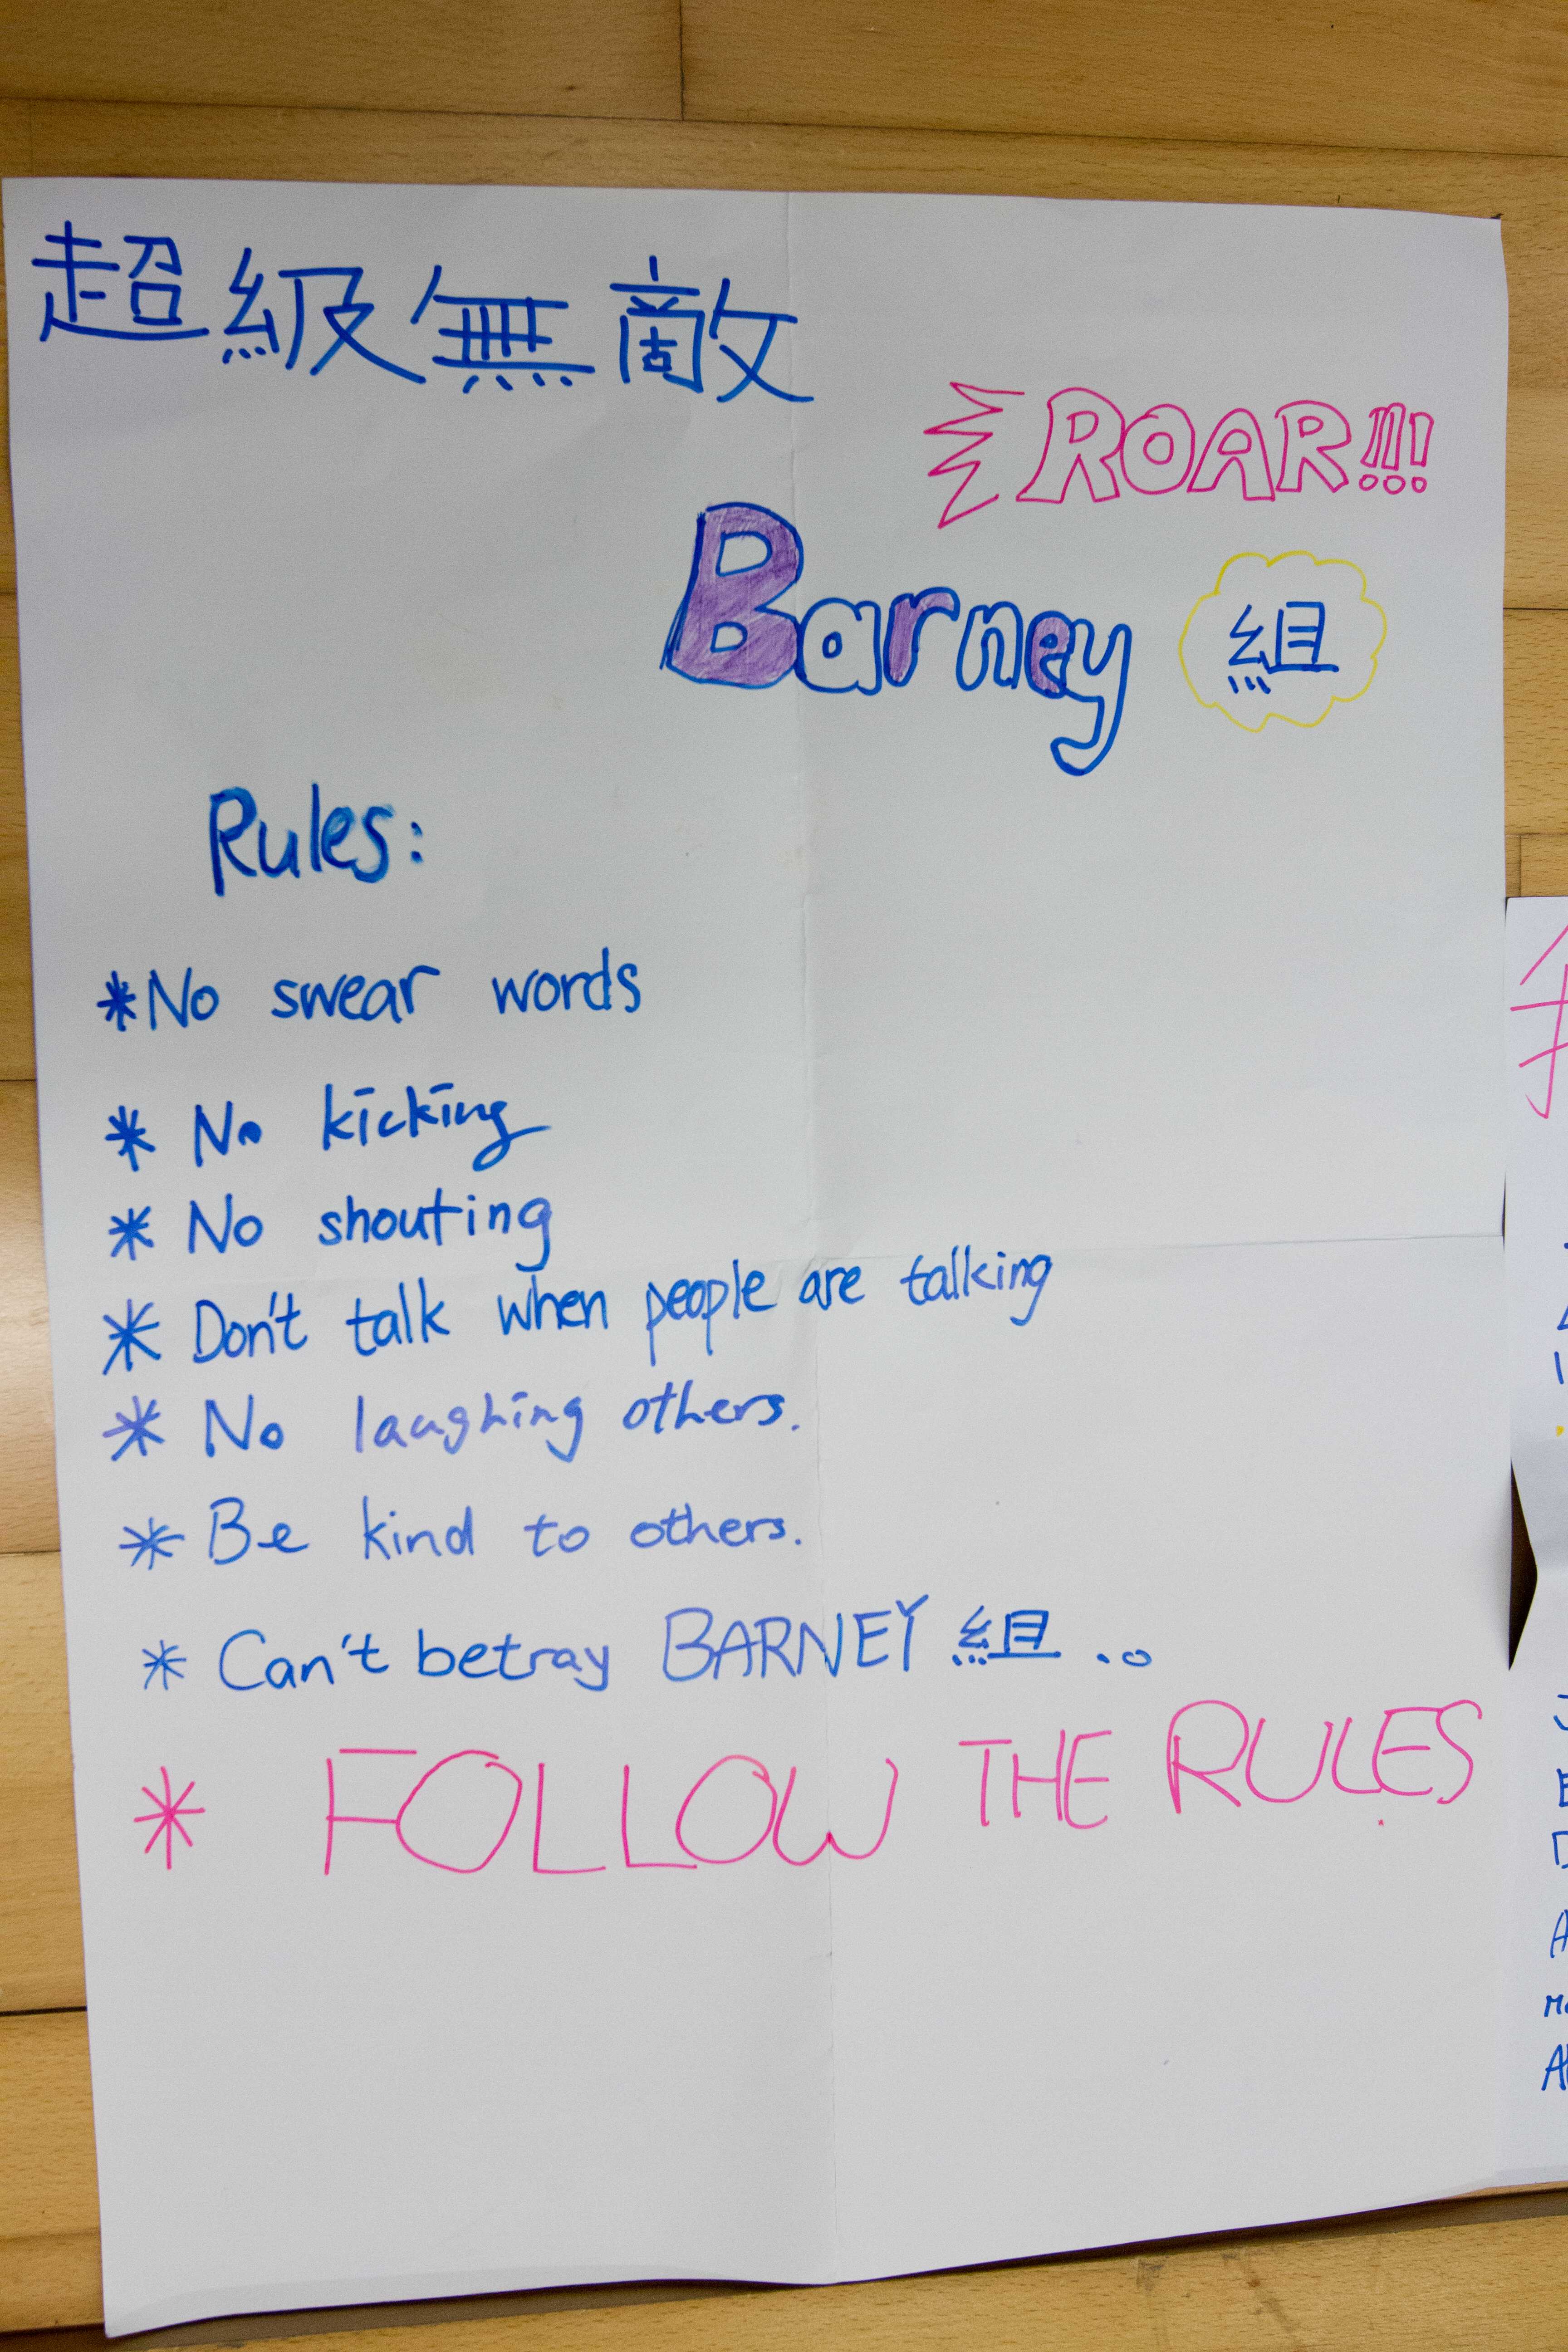 超級無敵
ROAR!!!
Barney 組
Rules:
*No swear words
* No kicking
* No shouting
* Don't talk when people are talking
* No laughing others.
* Be kind to others.
* Can't betray BARNEY 組..。
* FOLLOW THE RULES